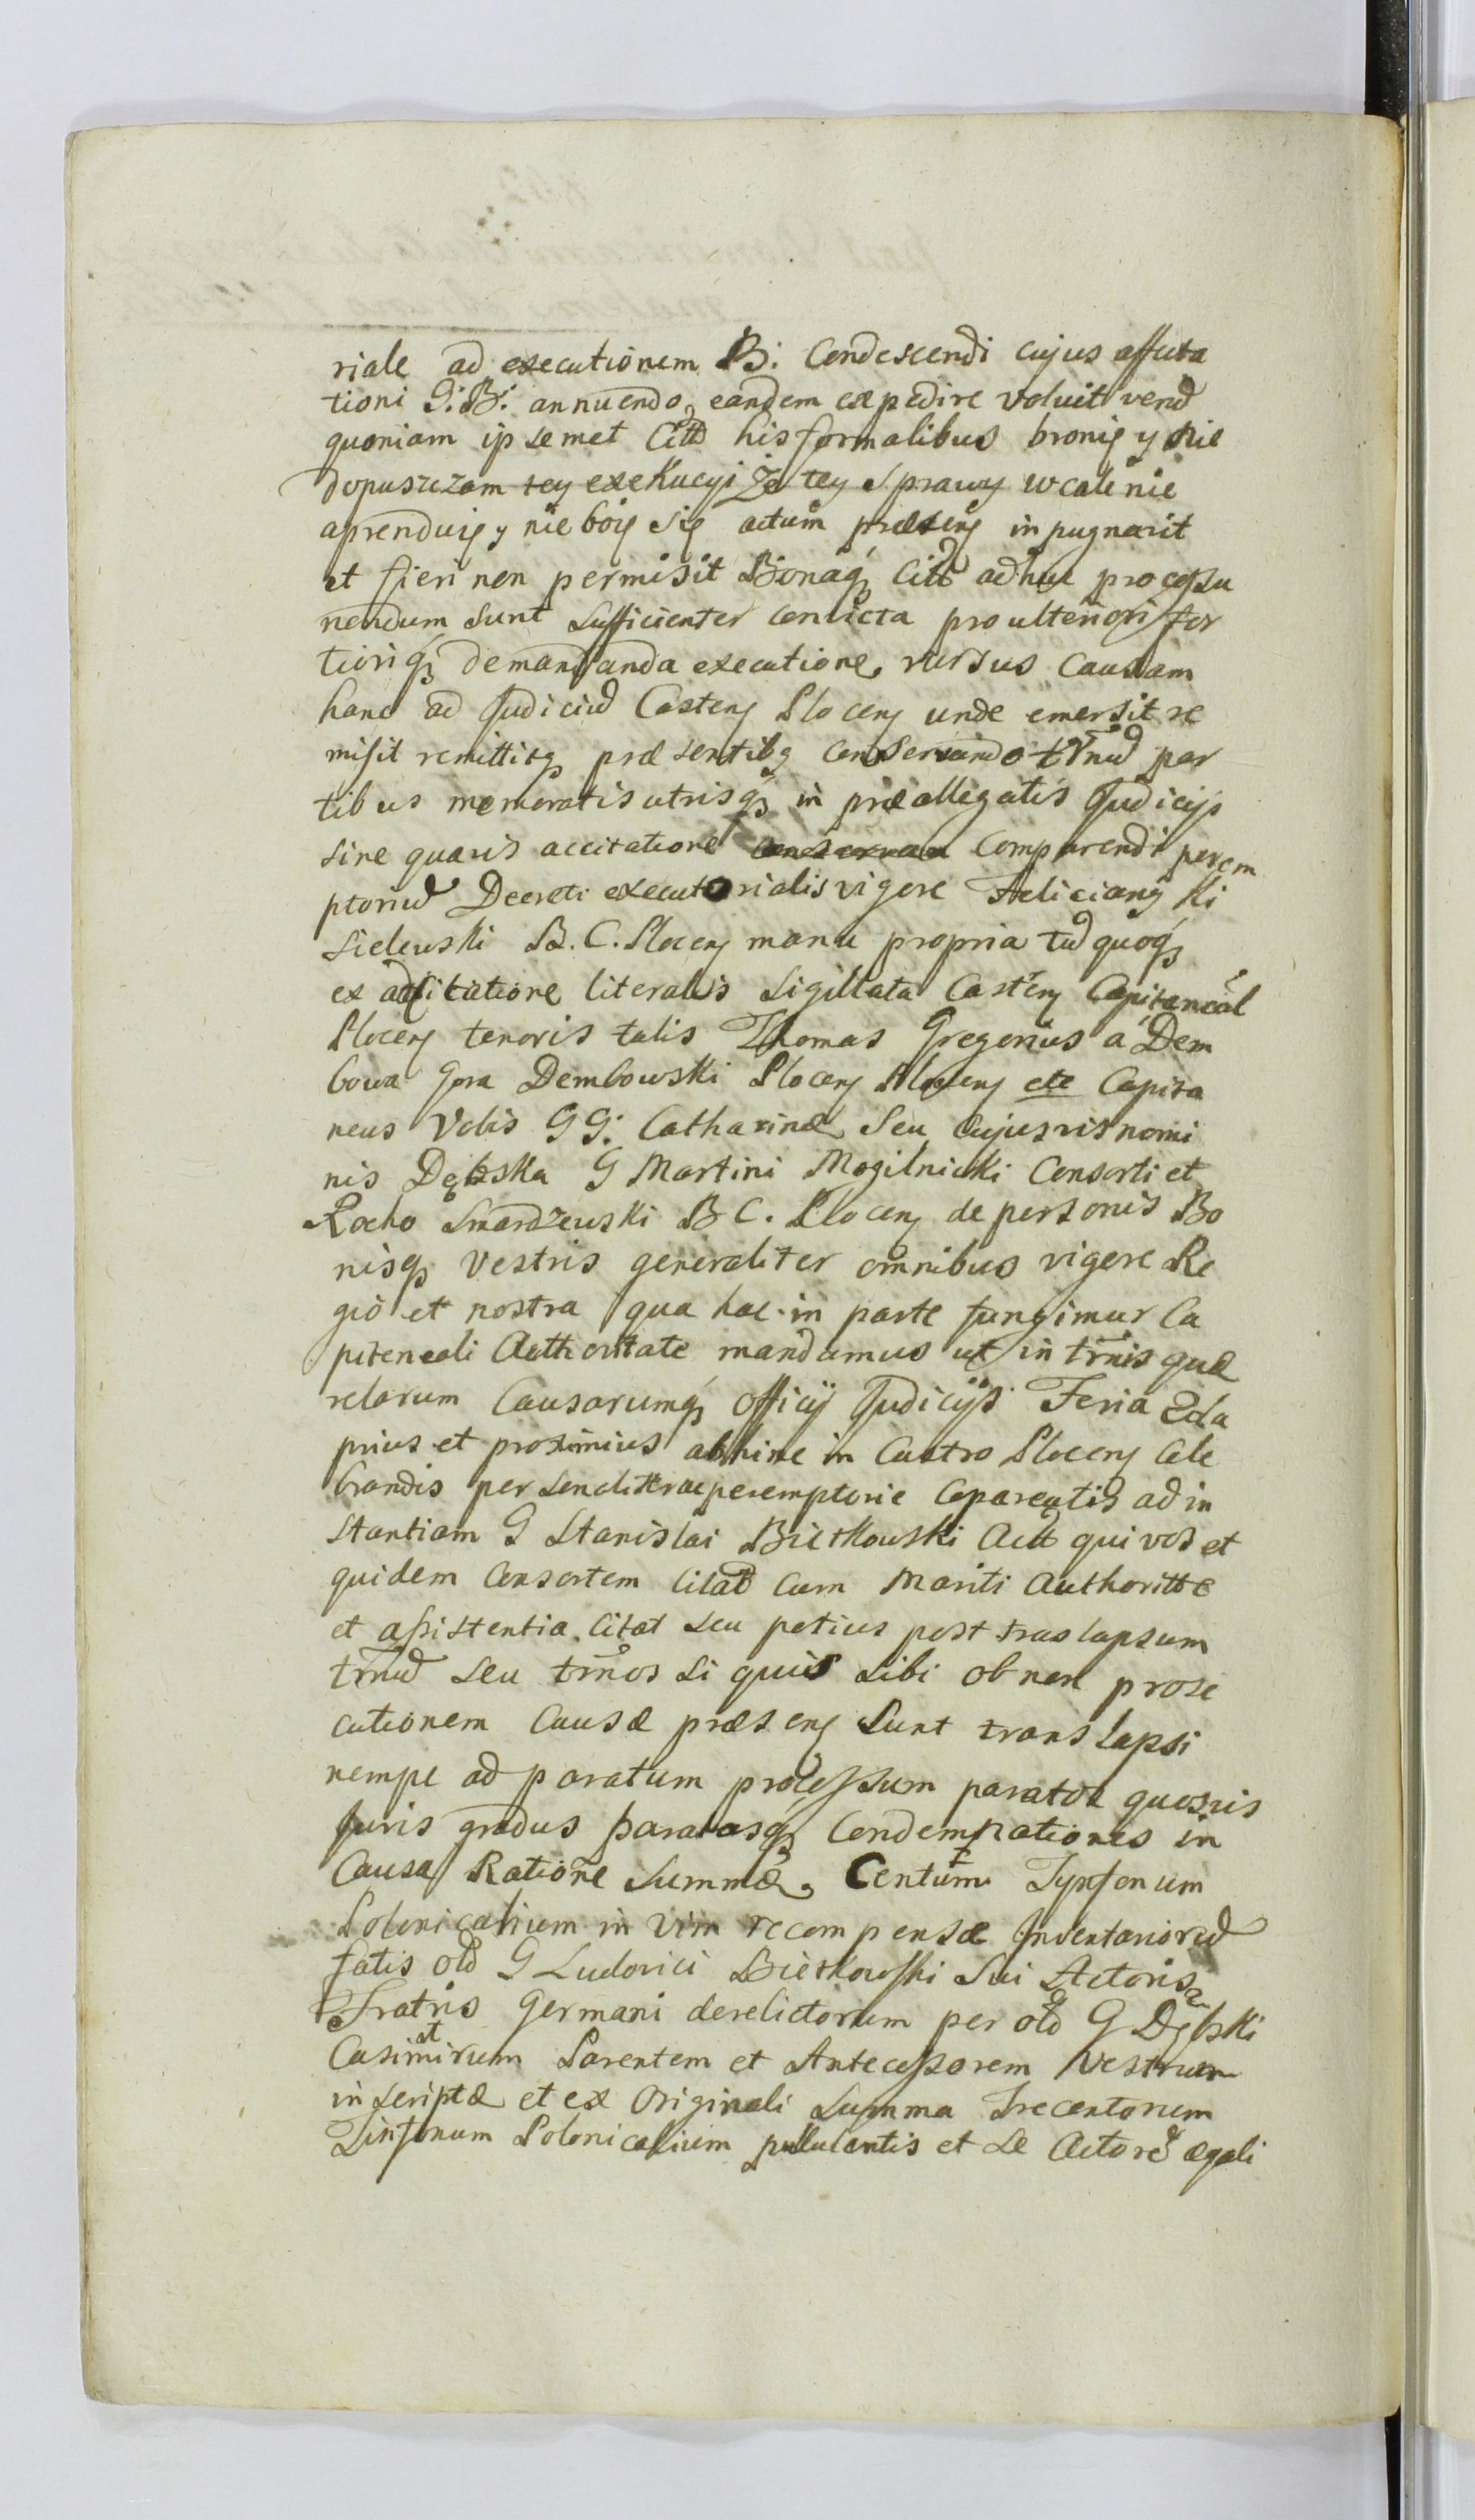 riale ad executionem B: Condescendi cujus affecta
tioni G: B: annuendo, eandem expedire voluit vend
quoniam ipsemet Citt his formalibus bronię y nie
dopuszczam tey exekucyi Ze tey sprawy wcale nie
aprenduię y nie boię się actum præseng inpugnavit
et fieri non permisit Bonaq Citt adhuc processu
nendum sunt sufficienter convicta pro ulteriori for
tioriq demandanda executione, rursus Causam
hanc ad Judiciu Casteng Ploceng unde emersit re
misit remittitq præsentibq conservando trnu par
tibus memoratis utrisq in præallegatis Judicijs
sine quavis accitatione Comparendi perem
ptoriu Decreti executorialis vigore Feliciang Ki
sielewski B. C. Ploceng manu propria tu quoq
ex adcitatione literalis Sigillata Casteng Capitaneal
Ploceng tenoris talis Thomas Gregorius a Dem
bowa Gora Dembowski Ploceng Ploceng etc Capita
neus Vobis GG: Catharinæ Seu Cujusvis nomi
nis Dębska G Martini Mogilnicki Consorti et
Rocho Smardzewski B C. Ploceng de personis Bo
nisq vestris generaliter omnibus vigore Re
gio et nostra qua hac in parte fungimur Ca
pitaneali Authoritate mandamus ut in trnis quæ
relarum Causarumq officij Judicijs Feria 2da
prius et proximius abhinc in Castro Ploceng Cele
brandis personaliter ac peremptorie Copareatis ad in
stantiam G Stanislai Bietkowski Act qui vos et
quidem Consortem Citad cum Mariti Authoritte
et assistentia Citat seu potius post translapsum
trnu seu trnos si quis sibi ob non prose
cutionem Causæ præseng sunt translapsi
nempe ad paratum processum paratos quosvis
Juris gradus paratasq Condempnationes in
Causa Ratione Summæ, Centum Tynfonum
Polonicalium in vim recompensæ Inventarioru
fatis old G Ludovici Bietkowski Sui Actoris
Fratris Germani derelictorum per old G Dębski
Casimirum Parentem et Antecessorem Vestrum
inscriptæ et ex Originali Summa Trecentorum
Tinfonum Polonicalium pullulantis et de Actore ægali